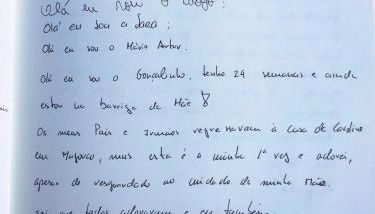 Olá eu sou o Diogo!
Olá eu sou a Sara;
Olá eu sou o Mário Artur.
Olá eu sou o Goncalinho, tenho 24 semanas e ainda
estou na barriga da Mãe
Os meus Pais e irmãos regressavam à Casa de Cardina
em Março, mas esta é a minha 1ª vez e adorei,
apesar de resguardado ao cuidado da minha Mãe.
sei que todos adoraram e eu também